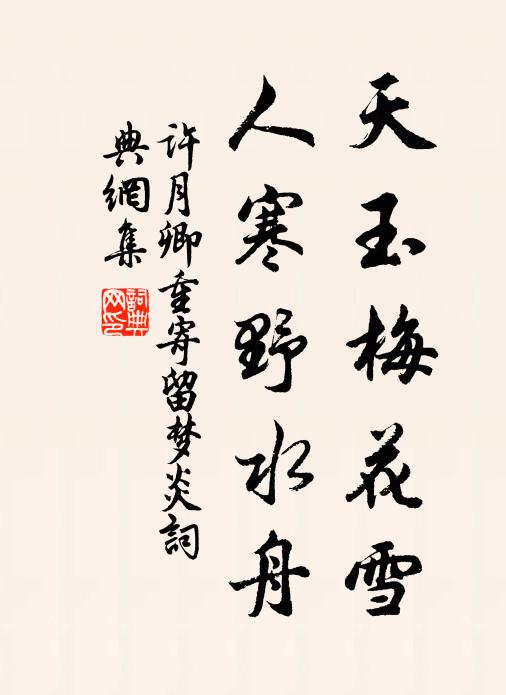 天玉梅花雪
人寒野水舟
许月卿重寄留梦炎詞
典網集
詞典网印